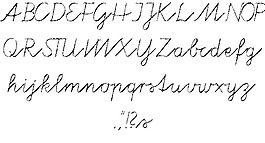 ABCDEFGHIJKLMNOP
QRSTUVWXYZabcdefg
hijklmnopqrstuvwxyz
.,"!?s